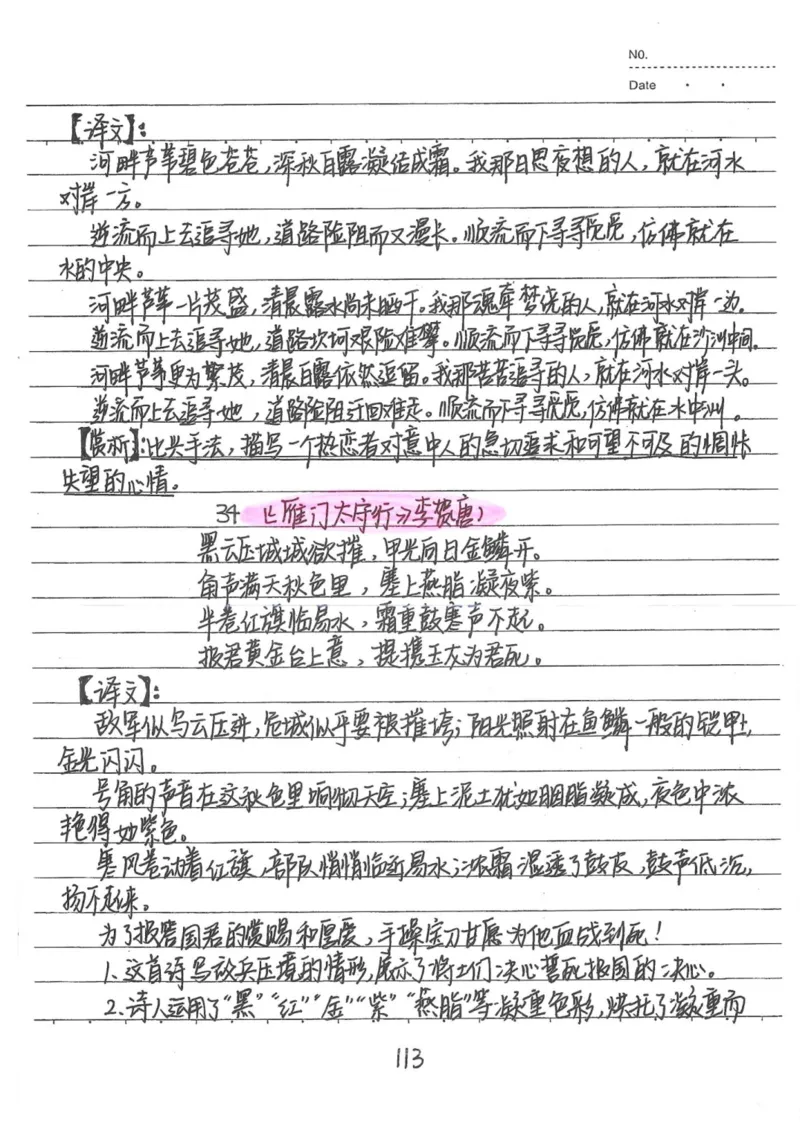 No.
Date
【译文】:
河畔芦苇碧色苍苍，深秋白露凝结成霜。我那日思夜想的人，就在河水
对岸一方。
逆流而上去追寻她，道路险阻而又漫长。顺流而下寻寻觅觅，仿佛就在
水的中央。
河畔芦苇一片茂盛，清晨露水尚未晒干。我那魂牵梦绕的人，就在河水对岸一边。
逆流而上去追寻她，道路坎坷艰险难攀。顺流而下寻寻觅觅，仿佛就在沙洲中间。
河畔芦苇更为繁茂，清晨白露依然逗留。我那苦苦追寻的人，就在河水对岸一头。
逆流而上去追寻她，道路险阻迂回难走。顺流而下寻寻觅觅，仿佛就在水中洲。
【赏析】:比兴手法，描写一个热恋者对意中人的急切追求和可望不可及的惆怅
失望的心情。
34 《雁门太守行》李贺(唐)
黑云压城城欲摧，甲光向日金鳞开。
角声满天秋色里，塞上燕脂凝夜紫。
半卷红旗临易水，霜重鼓寒声不起。
报君黄金台上意，提携玉龙为君死。
【译文】:
敌军似乌云压进，危城似乎要被摧垮；阳光照射在鱼鳞一般的铠甲上，
金光闪闪。
号角的声音在这秋色里响彻天空；塞上泥土犹如胭脂凝成，夜色中浓
艳得如紫色。
寒风卷动着红旗，部队悄悄临近易水；浓霜湿透了鼓皮，鼓声低沉，
扬不起来。
为了报答国君的赏赐和厚爱，手操宝刀甘愿为他血战到死！
1.这首诗写敌兵压境的情形，展示了将士们决心誓死报国的决心。
2.诗人运用了“黑”“红”“金”“紫”“燕脂”等凝重色彩，烘托了凝重而
113